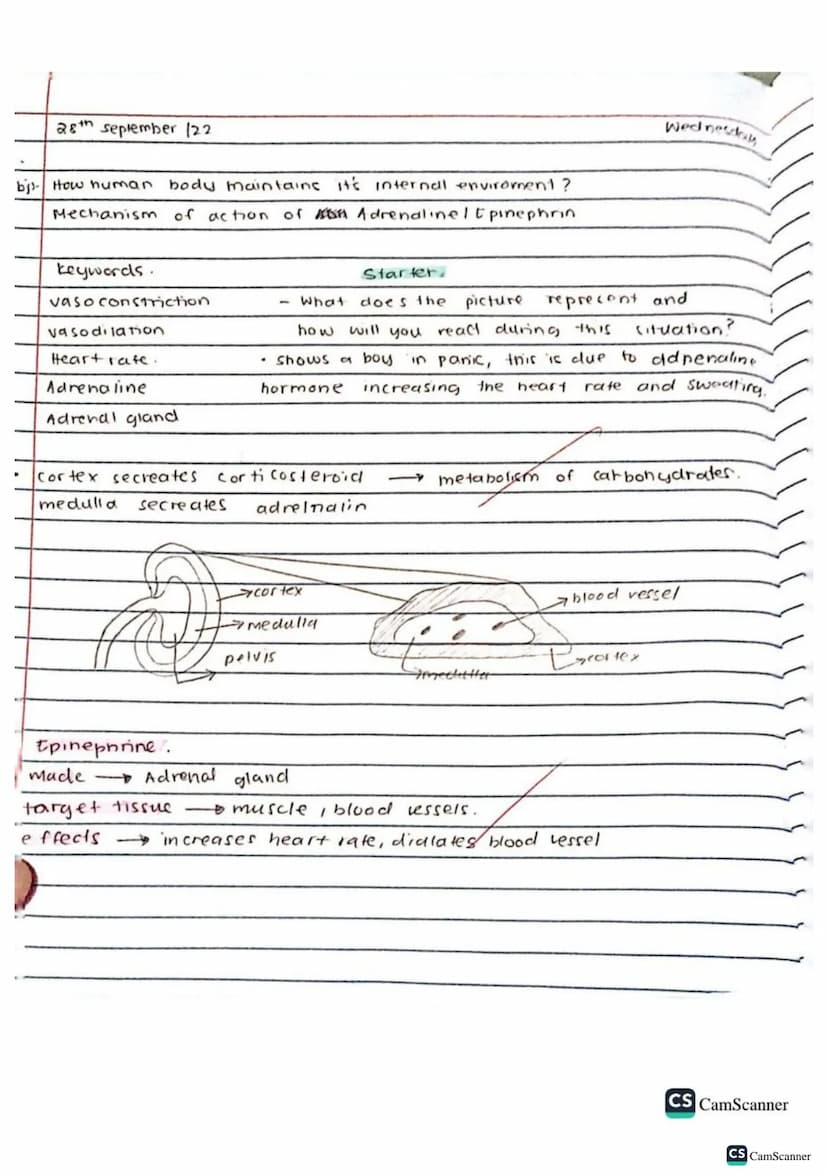 28th september /22
Wednesday
bjl- How human body maintains it's internal enviroment ?
Mechanism of action of Adrenaline / Epinephrin
Keywords.
Starter.
vasoconstriction
- What does the picture reprecent and
vasodilation
how will you react during this situation?
Heart rate.
• shows a boy in panic, this is due to adrenaline
Adrenaline
hormone increasing the heart rate and sweating.
Adrenal gland
• cortex secreates corticosteroid → metabolism of carbohydrates.
medulla secreates adrelnalin
cortex
blood vessel
medulla
pelvis
cortex
medulla
Epinephrine.
made → Adrenal gland
target tissue → muscle, blood vessels.
effects → increases heart rate, dialates blood vessel
CS CamScanner
CS CamScanner